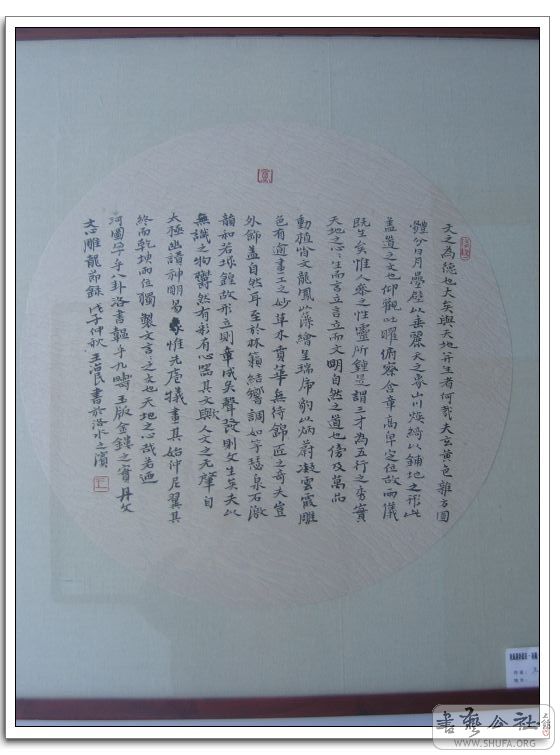 文之為德也大矣與天地并生者何哉夫玄黃色雜方圓
體分日月疊璧以垂麗天之象山川煥綺以鋪地之形此
蓋道之文也仰觀吐曜俯察含章高卑定位故兩儀
既生矣惟人參之性靈所鍾是謂三才為五行之秀實
天地之心心生而言立言立而文明自然之道也傍及萬品
動植皆文龍鳳以藻繪呈瑞虎豹以炳蔚凝雲霞雕
色有逾畫工之妙草木賁華無待錦匠之奇夫豈
外飾蓋自然耳至於林籟結響調如竽瑟泉石激
韻和若球鍠故形立則章成矣聲發則文生矣夫以
無識之物鬱然有彩有心器其文歟人文之元肇自
太極幽讚神明易象惟先庖犧畫其始仲尼翼其
終而乾坤兩位獨製文言言之文也天地之心哉若迺
河圖孕乎八卦洛書韞乎九疇玉版金鏤之實丹文
志心雕龍節錄 戊子仲秋王治民書於洛水之濱
書藝公社
WWW.SHUFA.ORG